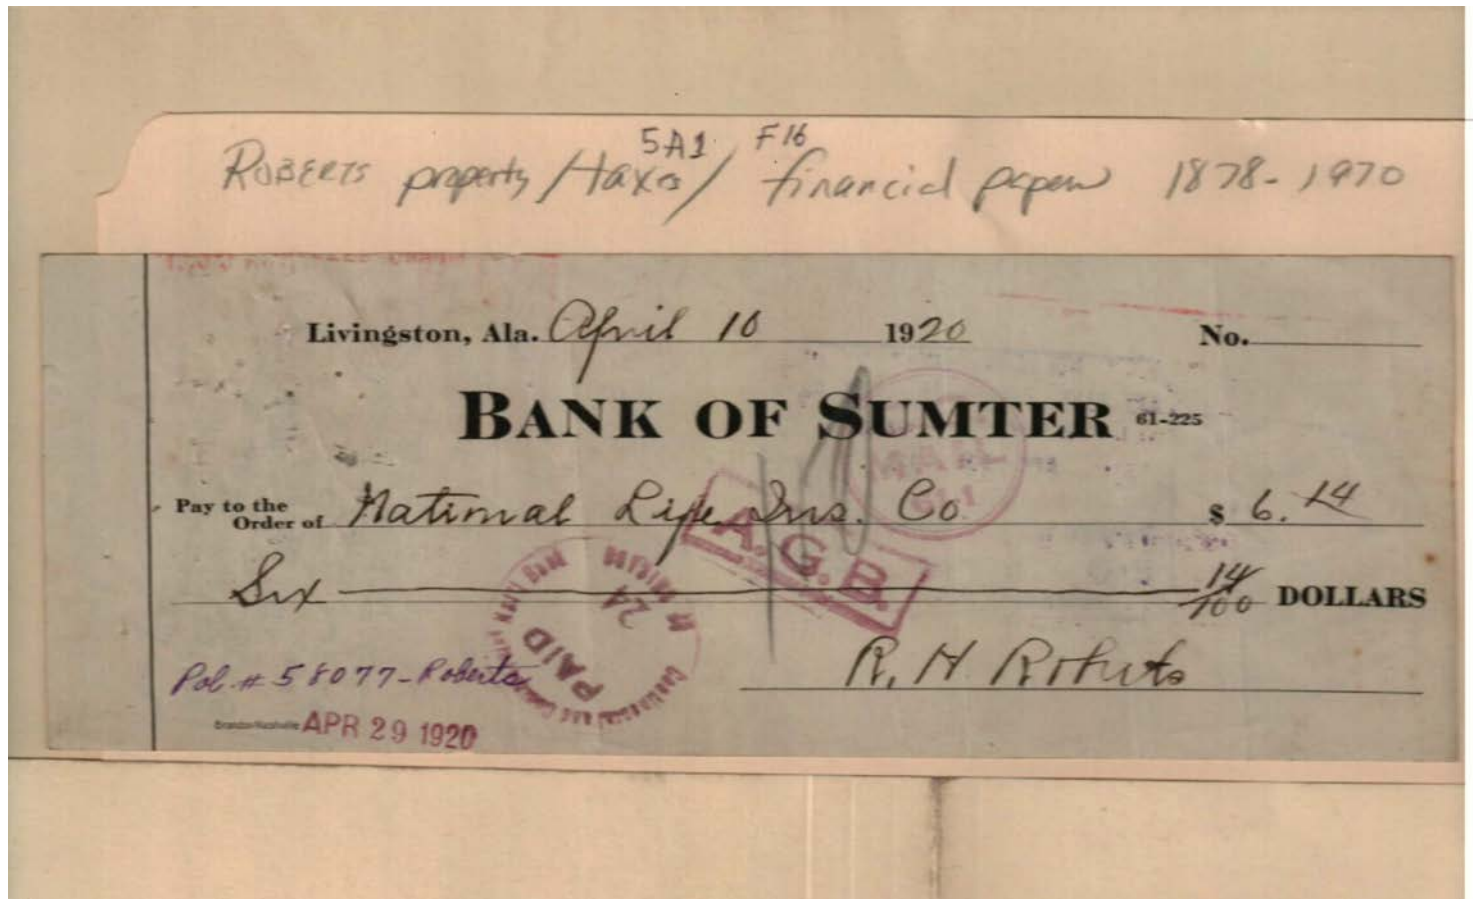 5A1 F16
ROBERTS property/taxes/ financial papers 1878-1970
Livingston, Ala. April 10 1920 No.
BANK OF SUMTER 61-225
Pay to the
Order of National Life Ins. Co $ 6.14
A.G.B.
Six 14/100 DOLLARS
PAID
24
R. H. Roberts
Pol. # 58077-Roberts
APR 29 1920